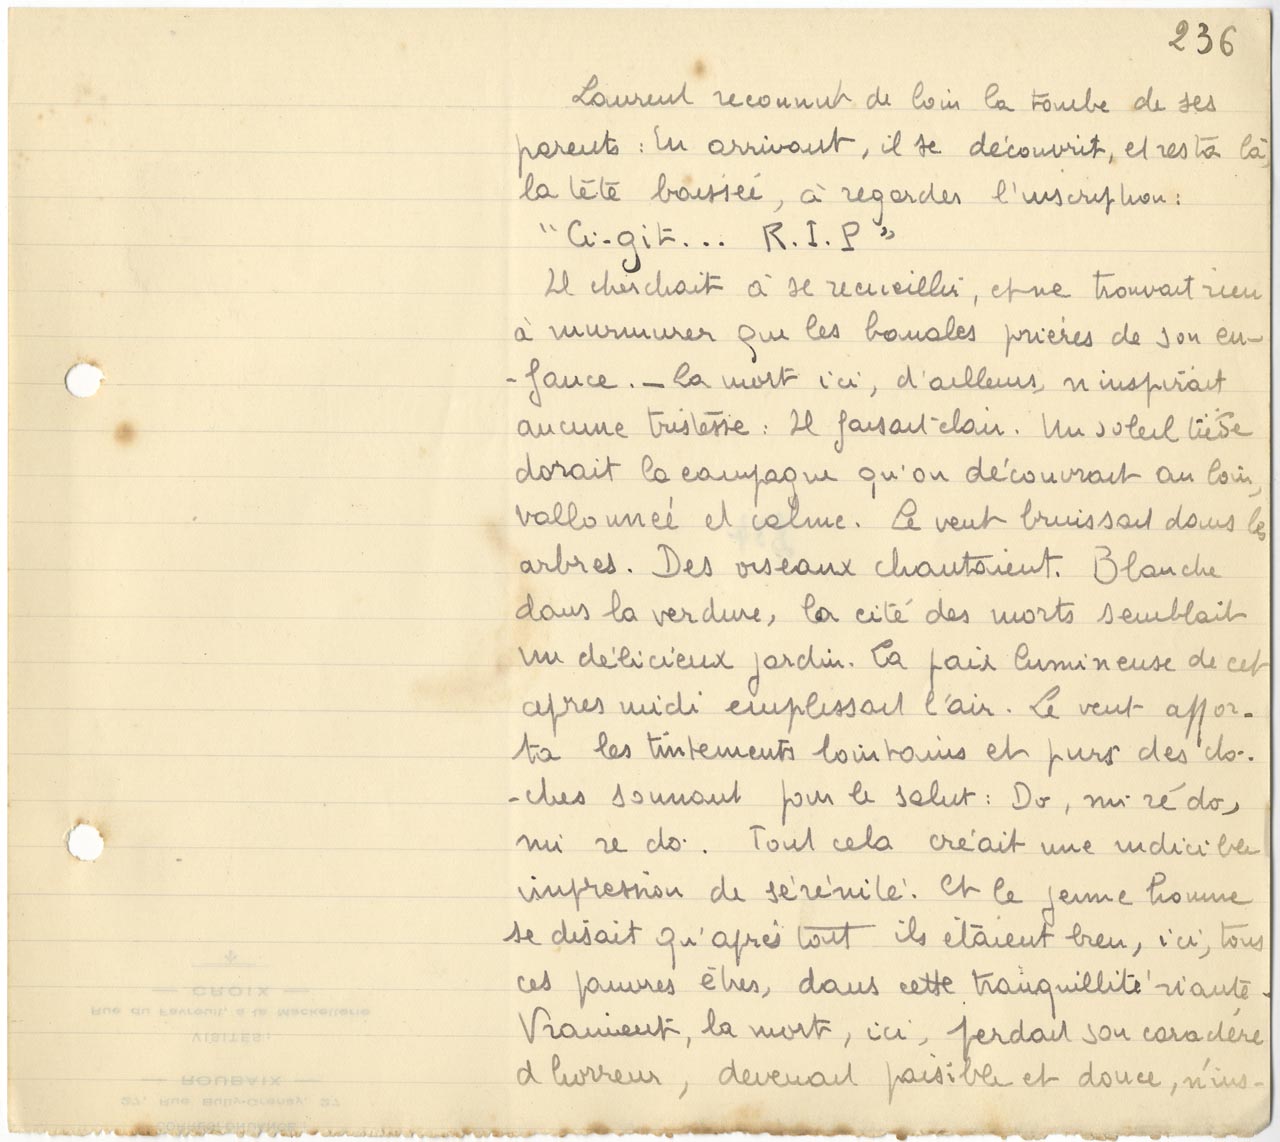 236
Laurent reconnut de loin la tombe de ses
parents : En arrivant, il se découvrit, et resta là,
la tête baissée, à regarder l'inscription :
"Ci-git... R.I.P"
Il cherchait à se recueillir, et ne trouvait rien
à murmurer que les banales prières de son en-
-fance. - La mort ici, d'ailleurs, n'inspirait
aucune tristesse : Il faisait clair. Un soleil tiède
dorait la campagne qu'on découvrait au loin,
vallonnée et calme. Le vent bruissait dans les
arbres. Des oiseaux chantaient. Blanche
dans la verdure, la cité des morts semblait
un délicieux jardin. La paix lumineuse de cet
après midi emplissait l'air. Le vent appor-
ta les tintements lointains et purs des clo-
-ches sonnant pour le salut : Do, mi ré do,
mi re do. Tout cela créait une indicible
impression de sérénité. Et le jeune homme
se disait qu'après tout ils étaient bien, ici, tous
ces pauvres êtres, dans cette tranquillité riante.
Vraiment, la mort, ici, perdait son caractère
d'horreur, devenait paisible et douce, n'ins-
CROIX
Rue du Favreuil, à la Mackellerie
VISITES:
ROUBAIX
27, Rue Bully-Grenay, 27
CORRESPONDANCE: